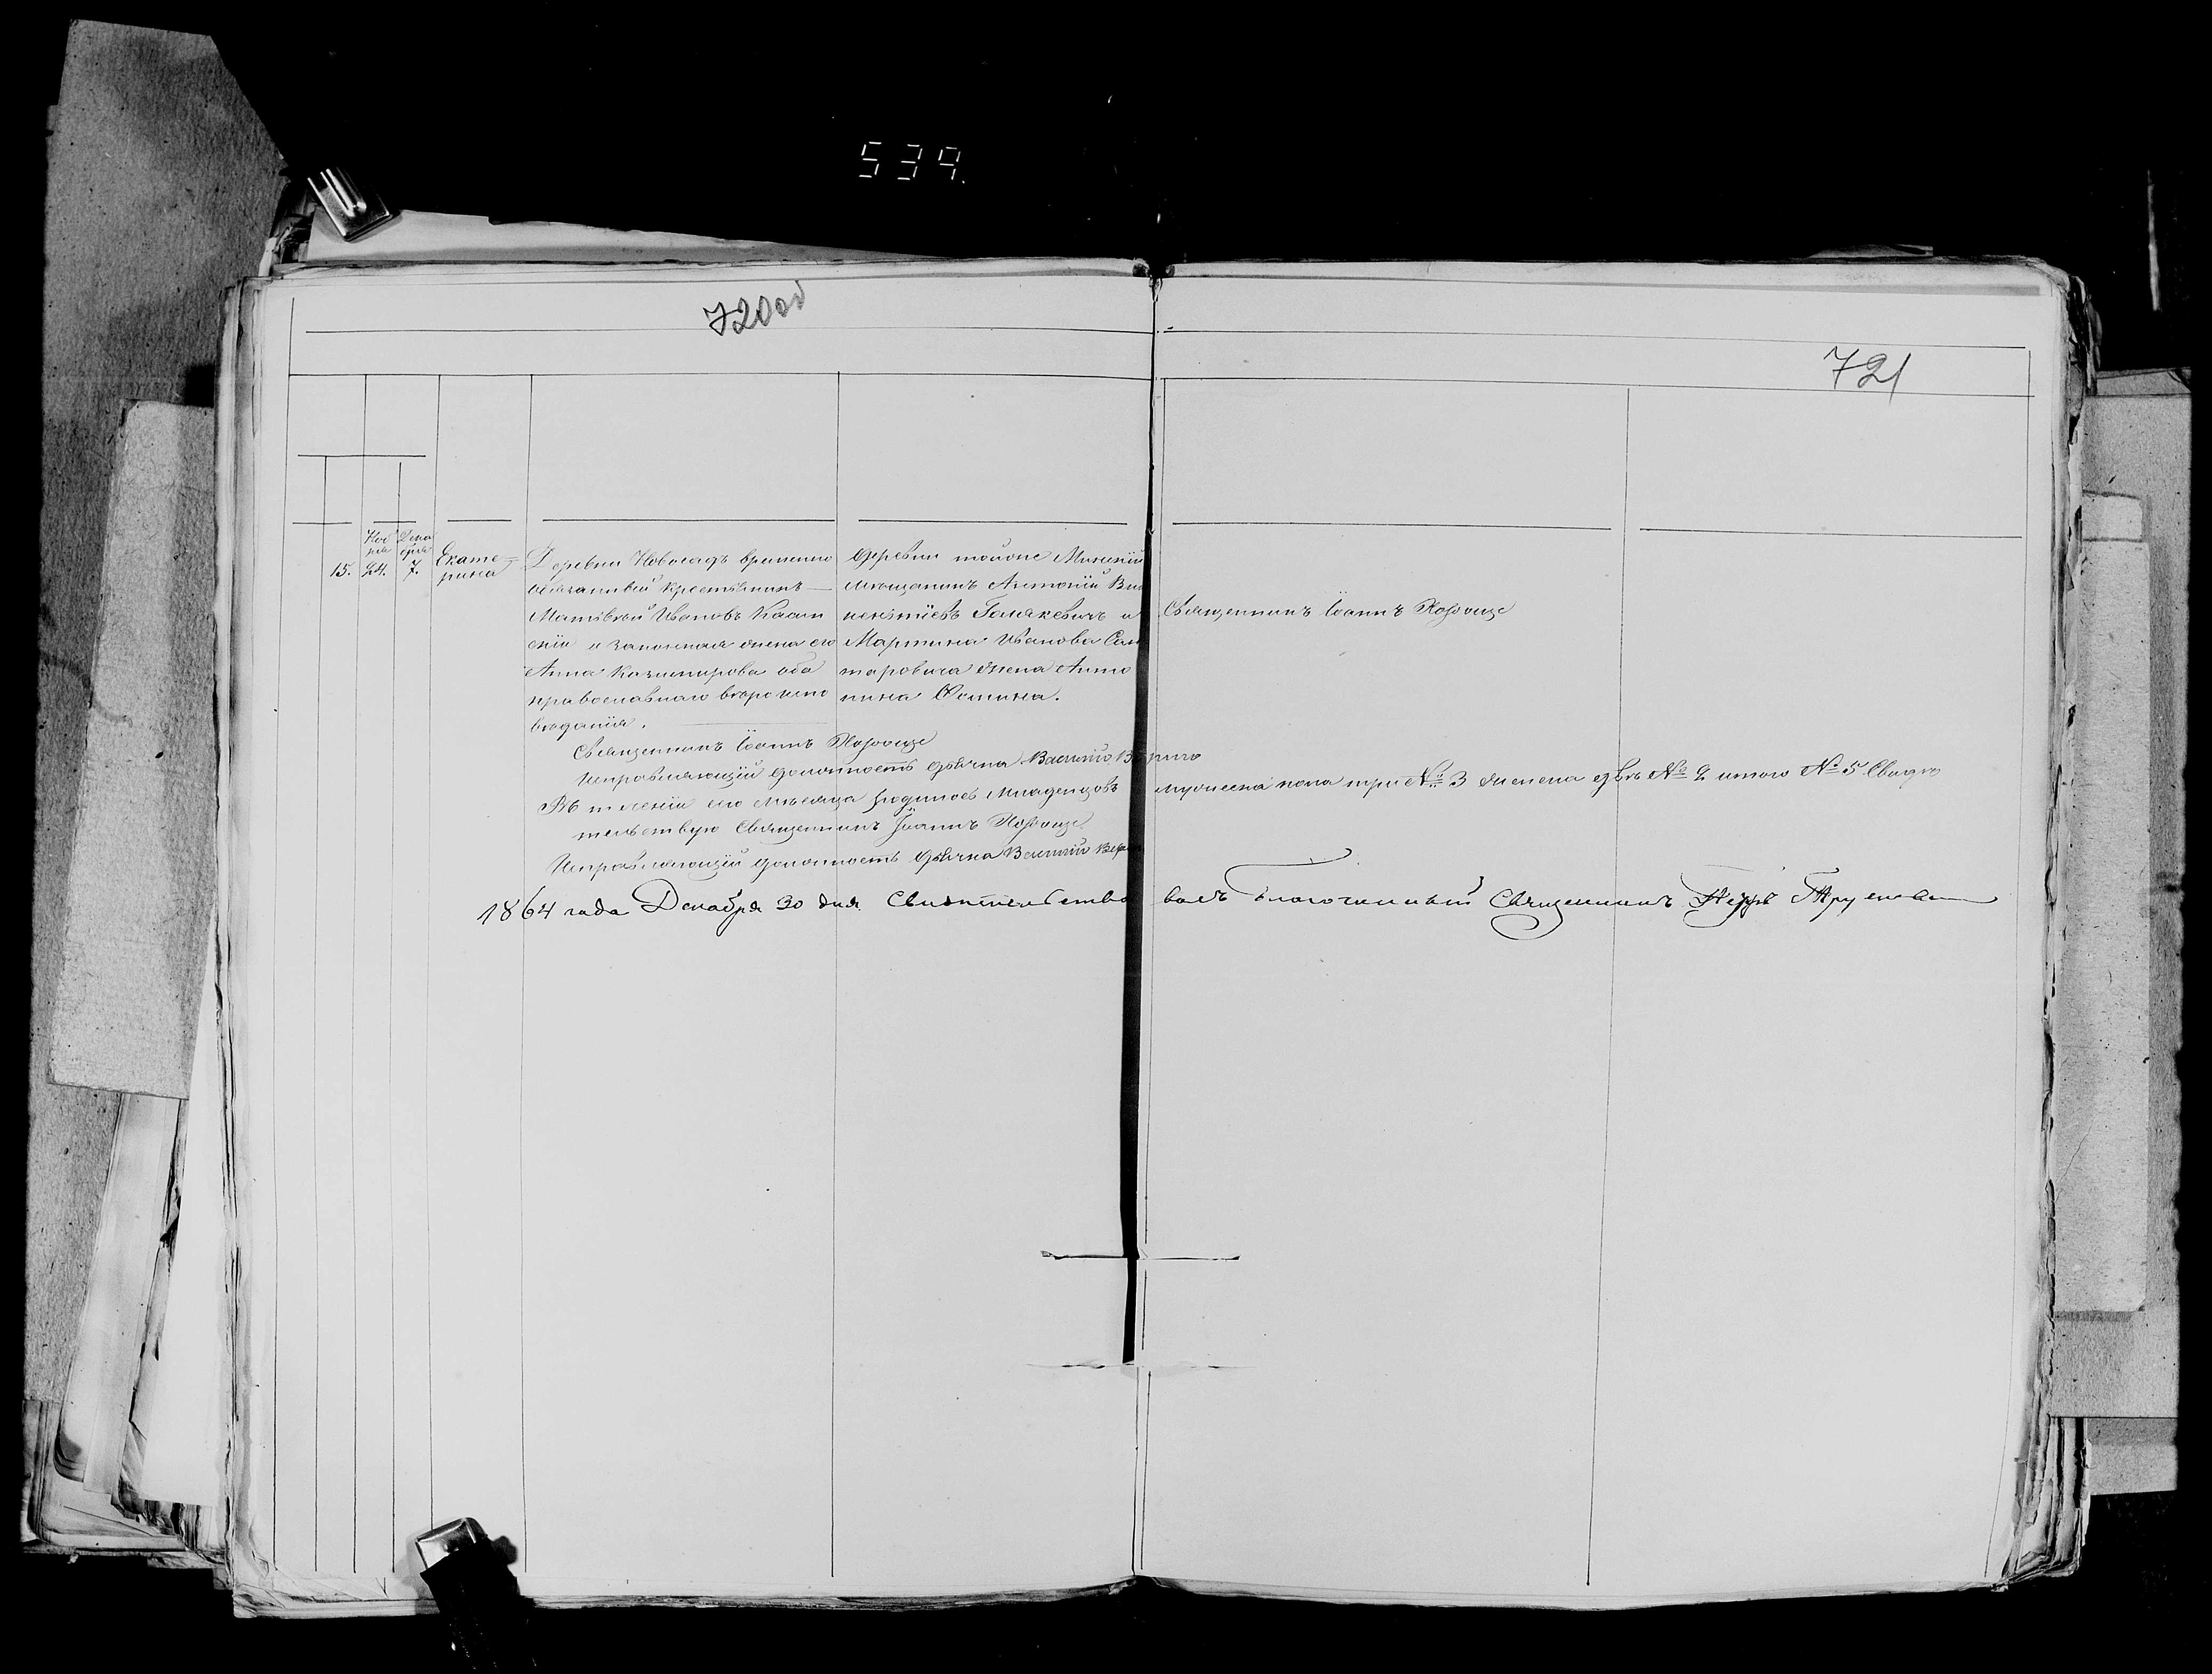 539.
720 об
721
Ноя Дека
бря бря
15. 24. 7.
Екате=
рина
Деревни Новосадъ временно
обязанный крестьянинъ —
Матвѣй Ивановъ
и законная жена его
Анна Казимирова оба
православнаго вѣроиспо
вѣданія.
деревни тойоне Минскій
мѣщанинъ Антоній Вин
кентіевъ и
Мартина Иванова Сан
таровича жена Анто
нина Фомина.
Священникъ Іоаннъ
Священникъ Іоаннъ
Исправляющій должность дьячка Василій
В теченіи его мѣсяца родилось младенцовъ мужеска пола три № 3 женска двѣ № 2 итого № 5 Свидѣ
тельствую Священникъ Іоаннъ
Исправляющій должность дьячка Василій
1864 года Декабря 30 дня Свидѣтельство валъ Благочинный Священникъ Петръ